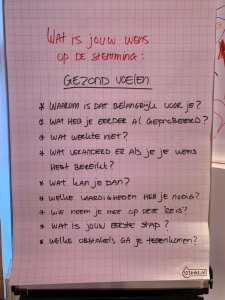 WAT IS JOUW WENS
OP DE STEMMING:
GEZOND VOELEN
* WAAROM IS DAT BELANGRIJK VOOR JE?
* WAT HEB JE EERDER AL GEPROBEERD?
* WAT WERKTE NIET?
* WAT VERANDERD ER ALS JE JE WENS
HEBT BEREIKT?
* WAT KAN JE DAN?
* WELKE VAARDIGHEDEN HEB JE NODIG?
* WIE NEEM JE MET OP DEZE REIS?
* WAT IS JOUW EERSTE STAP?
* WELKE OBSTAKELS GA JE TEGENKOMEN?
123inkt.nl